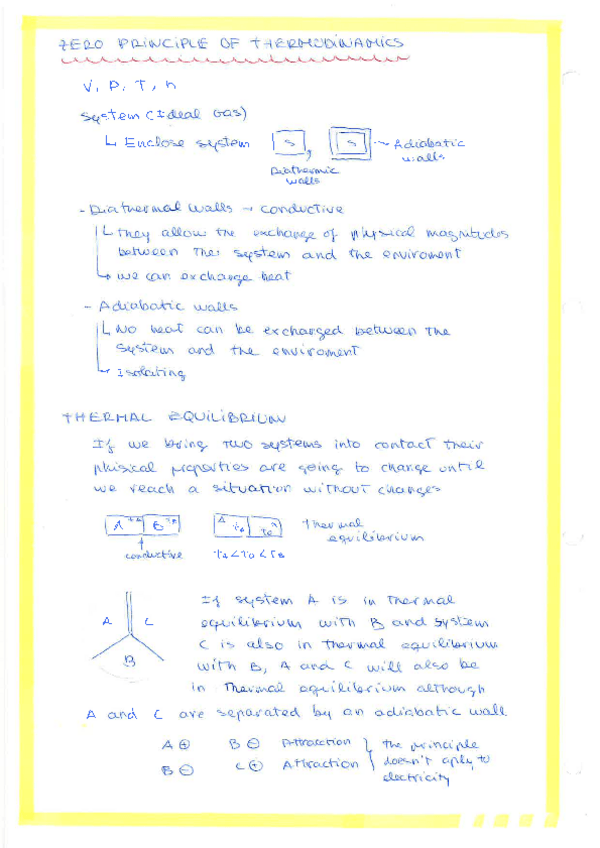 ZERO PRINCIPLE OF THERMODINAMICS
V, P, T, n
System (Ideal Gas)
↳ Enclose system
S
Diathermic walls
S
→ Adiabatic walls
- Diathermal walls → conductive
↳ they allow the exchange of physical magnitudes
between the system and the enviroment
↳ we can exchange heat
- Adiabatic walls
↳ No heat can be exchanged between the
system and the enviroment
↳ Isolating
THERMAL EQUILIBRIUM
If we bring two systems into contact their
phisical properties are going to change until
we reach a situation without changes
A TA B TB
conductive
A T0 T0 B
TA < T0 < TB
Thermal
equilibrium
A C
B
If system A is in thermal
equilibrium with B and system
C is also in thermal equilibrium
with B, A and C will also be
in thermal equilibrium although
A and C are separated by an adiabatic wall.
A ⊕ B ⊖ Attraction } the principle
doesn't aply to
B ⊖ C ⊕ Attraction
electricity